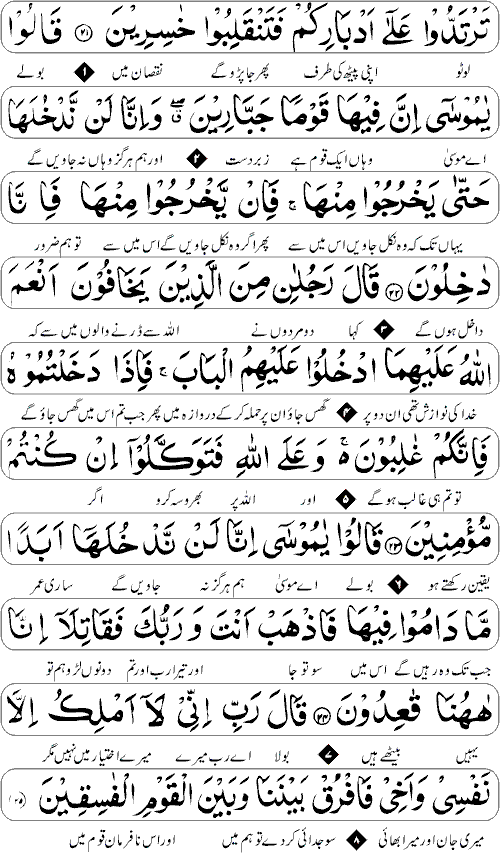 تَرْتَدُّوْا عَلٰٓى اَدْبَارِكُمْ فَتَنْقَلِبُوْا خٰسِرِيْنَ ﴿۲۱﴾ قَالُوْا
لوٹو اپنی پیٹھ کی طرف پھر جا پڑو گے نقصان میں ۱ بولے
يٰمُوْسٰٓى اِنَّ فِيْهَا قَوْمًا جَبَّارِيْنَ ۖ وَاِنَّا لَنْ نَّدْخُلَهَا
اے موسیٰ وہاں ایک قوم ہے زبردست ۲ اور ہم ہرگز وہاں نہ جاویں گے
حَتّٰى يَخْرُجُوْا مِنْهَا ۚ فَاِنْ يَّخْرُجُوْا مِنْهَا فَاِنَّا
یہاں تک کہ وہ نکل جاویں اس میں سے پھر اگر وہ نکل جاویں گے اس میں سے تو ہم ضرور
دٰخِلُوْنَ ﴿۲۲﴾ قَالَ رَجُلٰنِ مِنَ الَّذِيْنَ يَخَافُوْنَ اَنْعَمَ
داخل ہوں گے ۳ کہا دو مردوں نے اللہ سے ڈرنے والوں میں سے کہ
اللّٰهُ عَلَيْهِمَا ادْخُلُوْا عَلَيْهِمُ الْبَابَ ۚ فَاِذَا دَخَلْتُمُوْهُ
خدا کی نوازش تھی ان دو پر ۴ گھس جاؤ ان پر حملہ کر کے دروازہ میں پھر جب تم اس میں گھس جاؤ گے
فَاِنَّكُمْ غٰلِبُوْنَ ۚ وَعَلَى اللّٰهِ فَتَوَكَّلُوْٓا اِنْ كُنْتُمْ
تو تم ہی غالب ہو گے ۵ اور اللہ پر بھروسہ کرو اگر
مُّؤْمِنِيْنَ ﴿۲۳﴾ قَالُوْا يٰمُوْسٰٓى اِنَّا لَنْ نَّدْخُلَهَآ اَبَدًا
یقین رکھتے ہو ۶ بولے اے موسیٰ ہم ہرگز نہ جاویں گے ساری عمر
مَّا دَامُوْا فِيْهَا فَاذْهَبْ اَنْتَ وَرَبُّكَ فَقَاتِلَآ اِنَّا
جب تک وہ رہیں گے اس میں سو تو جا اور تیرا رب اور تم دونوں لڑو ہم تو
هٰهُنَا قٰعِدُوْنَ ﴿۲۴﴾ قَالَ رَبِّ اِنِّيْ لَآ اَمْلِكُ اِلَّا
یہیں بیٹھے ہیں ۷ بولا اے رب میرے میرے اختیار میں نہیں مگر
نَفْسِيْ وَاَخِيْ فَافْرُقْ بَيْنَنَا وَبَيْنَ الْقَوْمِ الْفٰسِقِيْنَ ﴿۲۵﴾
میری جان اور میرا بھائی ۸ سو جدائی کر دے تو ہم میں اور اس نافرمان قوم میں